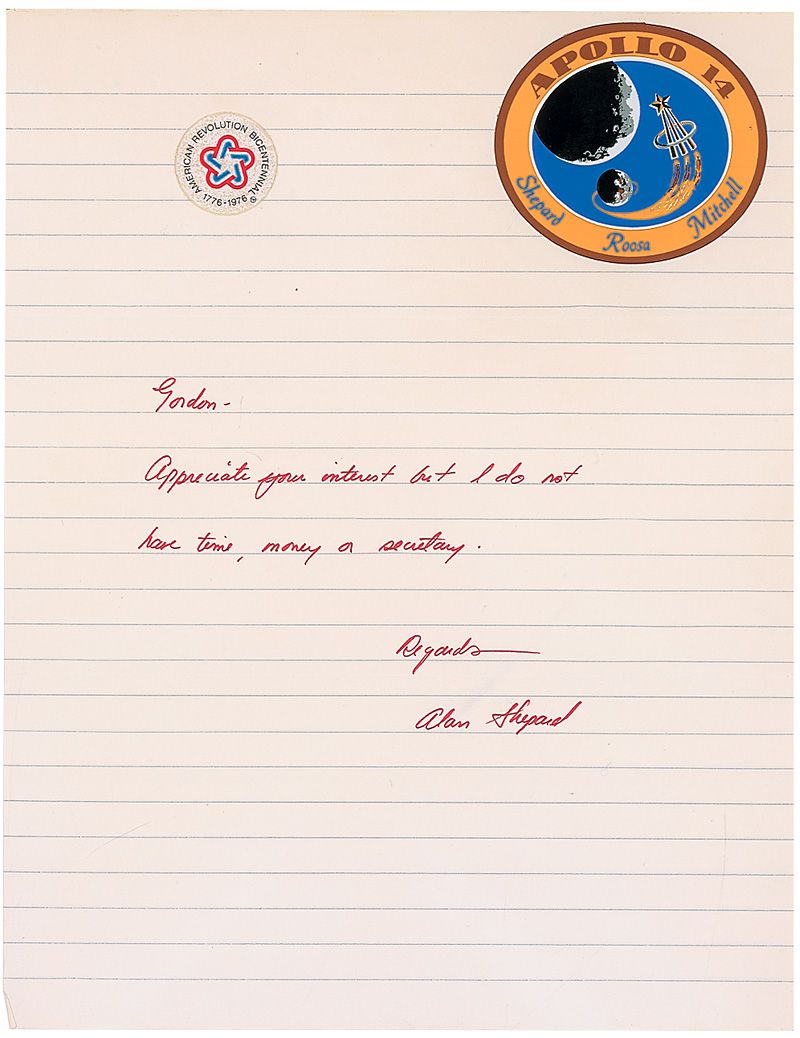 APOLLO 14
AMERICAN REVOLUTION BICENTENNIAL ©
1776-1976
Shepard
Roosa
Mitchell
Gordon-
Appreciate your interest but I do not
have time, money or secretary.
Regards
Alan Shepard